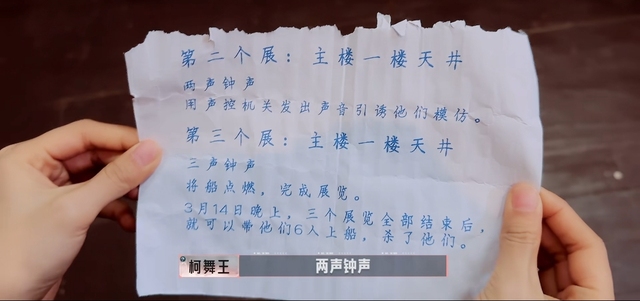 第二个展：主楼一楼天井
两声钟声
用声控机关发出声音引诱他们模仿。
第三个展：主楼一楼天井
三声钟声
将船点燃，完成展览。
3月14日晚上，三个展览全部结束后，
就可以带他们6人上船，杀了他们。
柯舞王 两声钟声